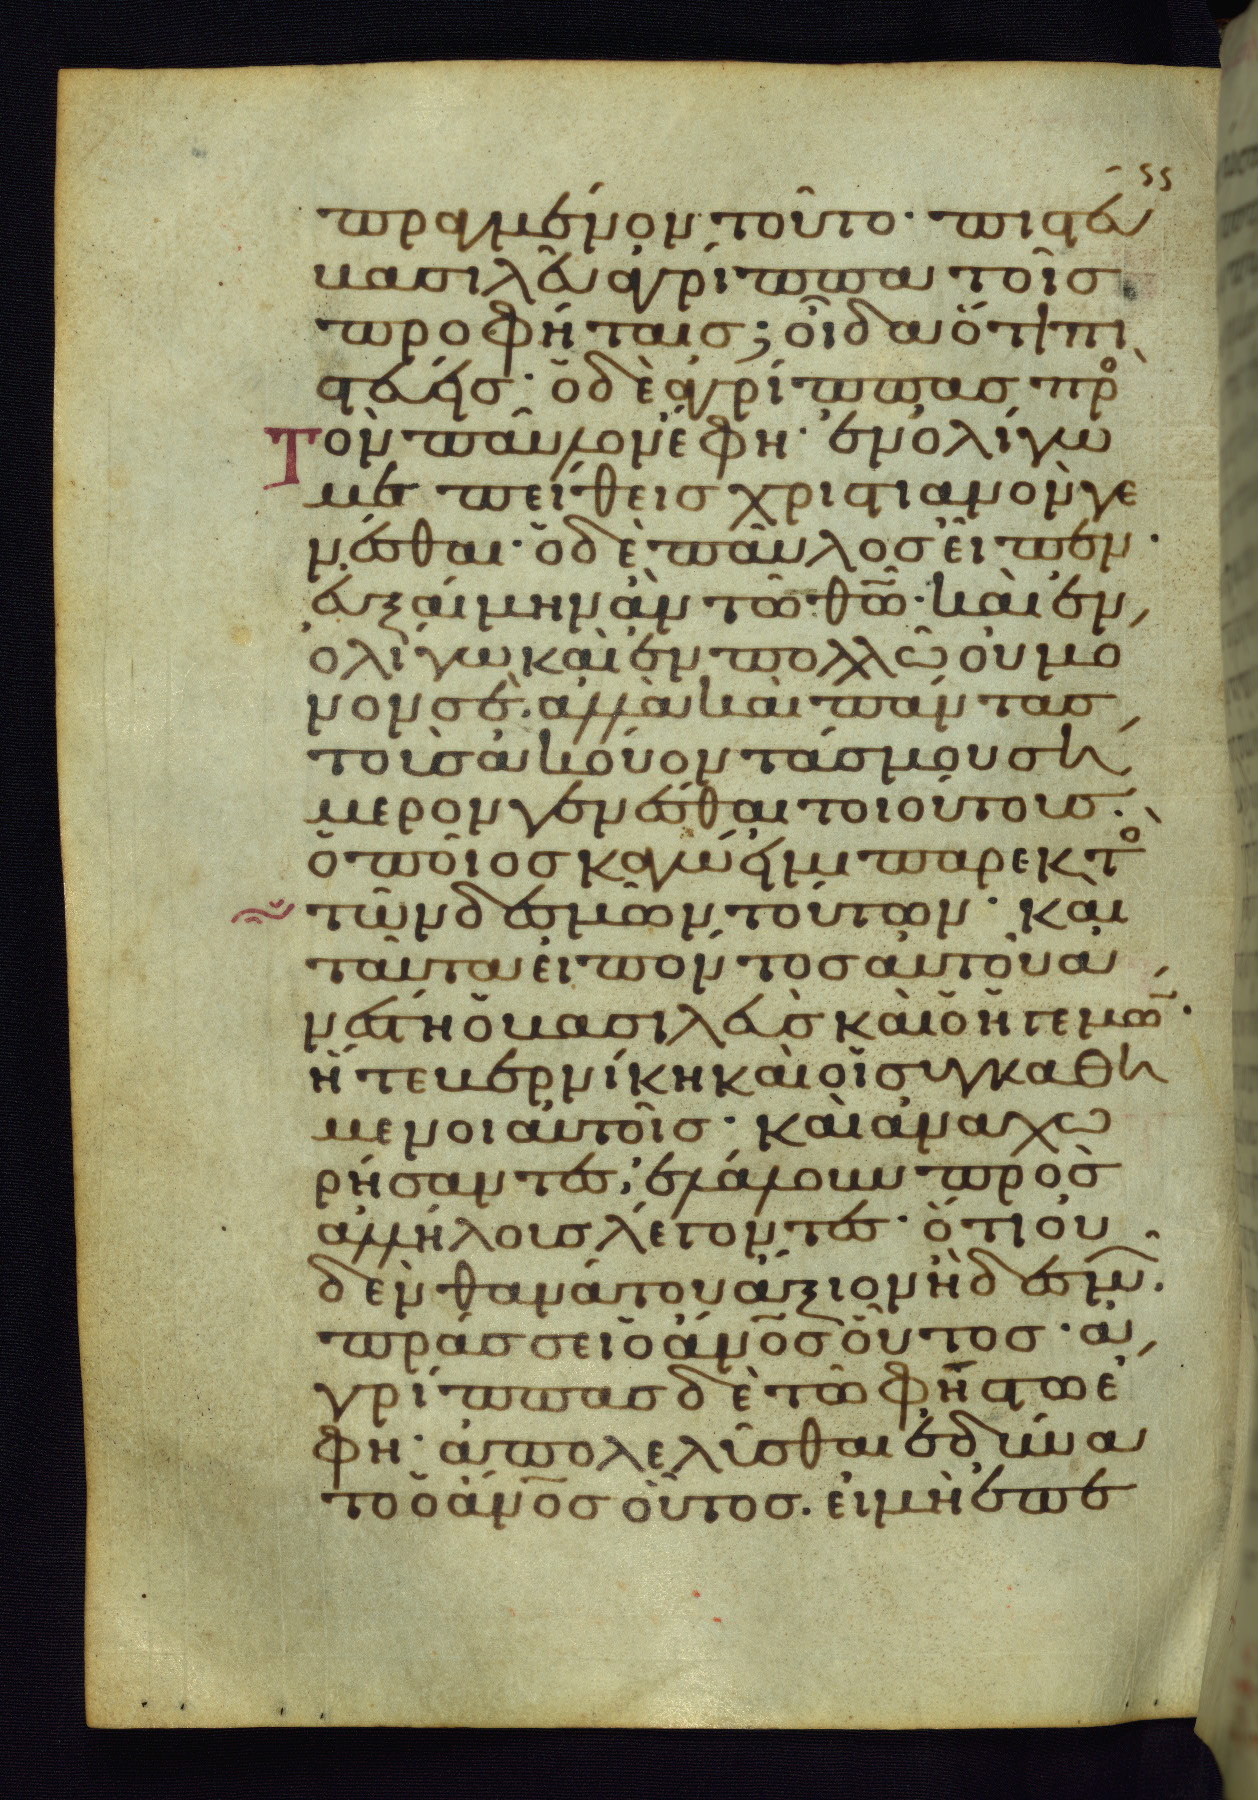 πραγμένον τοῦτο· πιστεύ
βασιλεῦ ἀγρίππα τοῖς
προφήταις; οἶδα ὅτι πι
στεύεις· ὁ δὲ ἀγρίππας πρὸ
Τὸν παῦλον ἔφη· ἐν ὀλίγω
με πείθεις χριστιανὸν γε
νέσθαι· ὁ δὲ παῦλος εἶπεν·
εὐξαίμην ἂν τῶ θ̅ω̅· καὶ ἐν
ὀλίγω καὶ ἐν πολλῶ οὐ μο
νον σὲ. ἀλλὰ καὶ πάντας
τοὺς ἀκούοντάς μου σή
μερον γενέσθαι τοιούτους·
ὁποῖος κἀγώ εἰμι παρεκτὸ
τῶν δεσμῶν τούτων· καὶ
ταῦτα εἰπόντος αὐτοῦ ἀ
νέστη ὁ βασιλεὺς καὶ ὁ ἡγεμω̅·
ἥ τε βερνίκη καὶ οἱ συγκαθή
μενοι αὐτοῖς· καὶ ἀναχω
ρήσαντες, ἐλάλουν πρὸς
ἀλλήλους λέγοντες· ὅτι οὐ
δὲν θανάτου ἄξιον ἢ δεσμῶ̅.
πράσσει ὁ ἄν̅ο̅ς οὗτος· ἀ
γρίππας δὲ τῶ φήστω ἔ
φη· ἀπολελῦσθαι ἐδύνα
το ὁ ἄν̅ο̅ς οὗτος. εἰ μὴ ἐπε